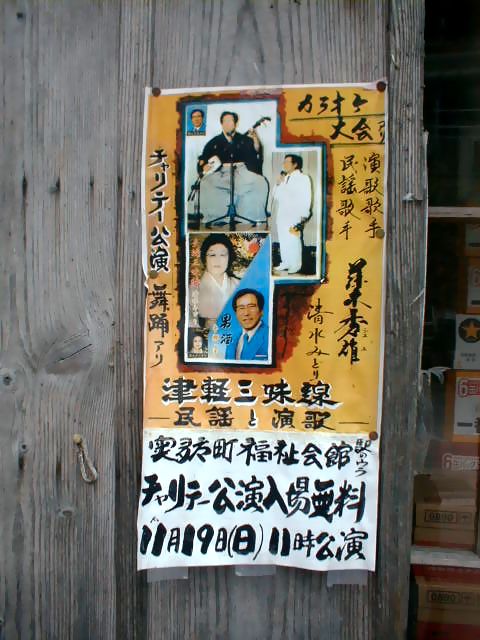 カラオケ
大会
演歌歌手
民謡歌手
清水みどり
チャリテー公演 舞踊アリ
男酒
津軽三味線
民謡と演歌
奥多摩町福祉会館
駅のウラ
チャリテー公演入場無料
11月19日(日)11時公演